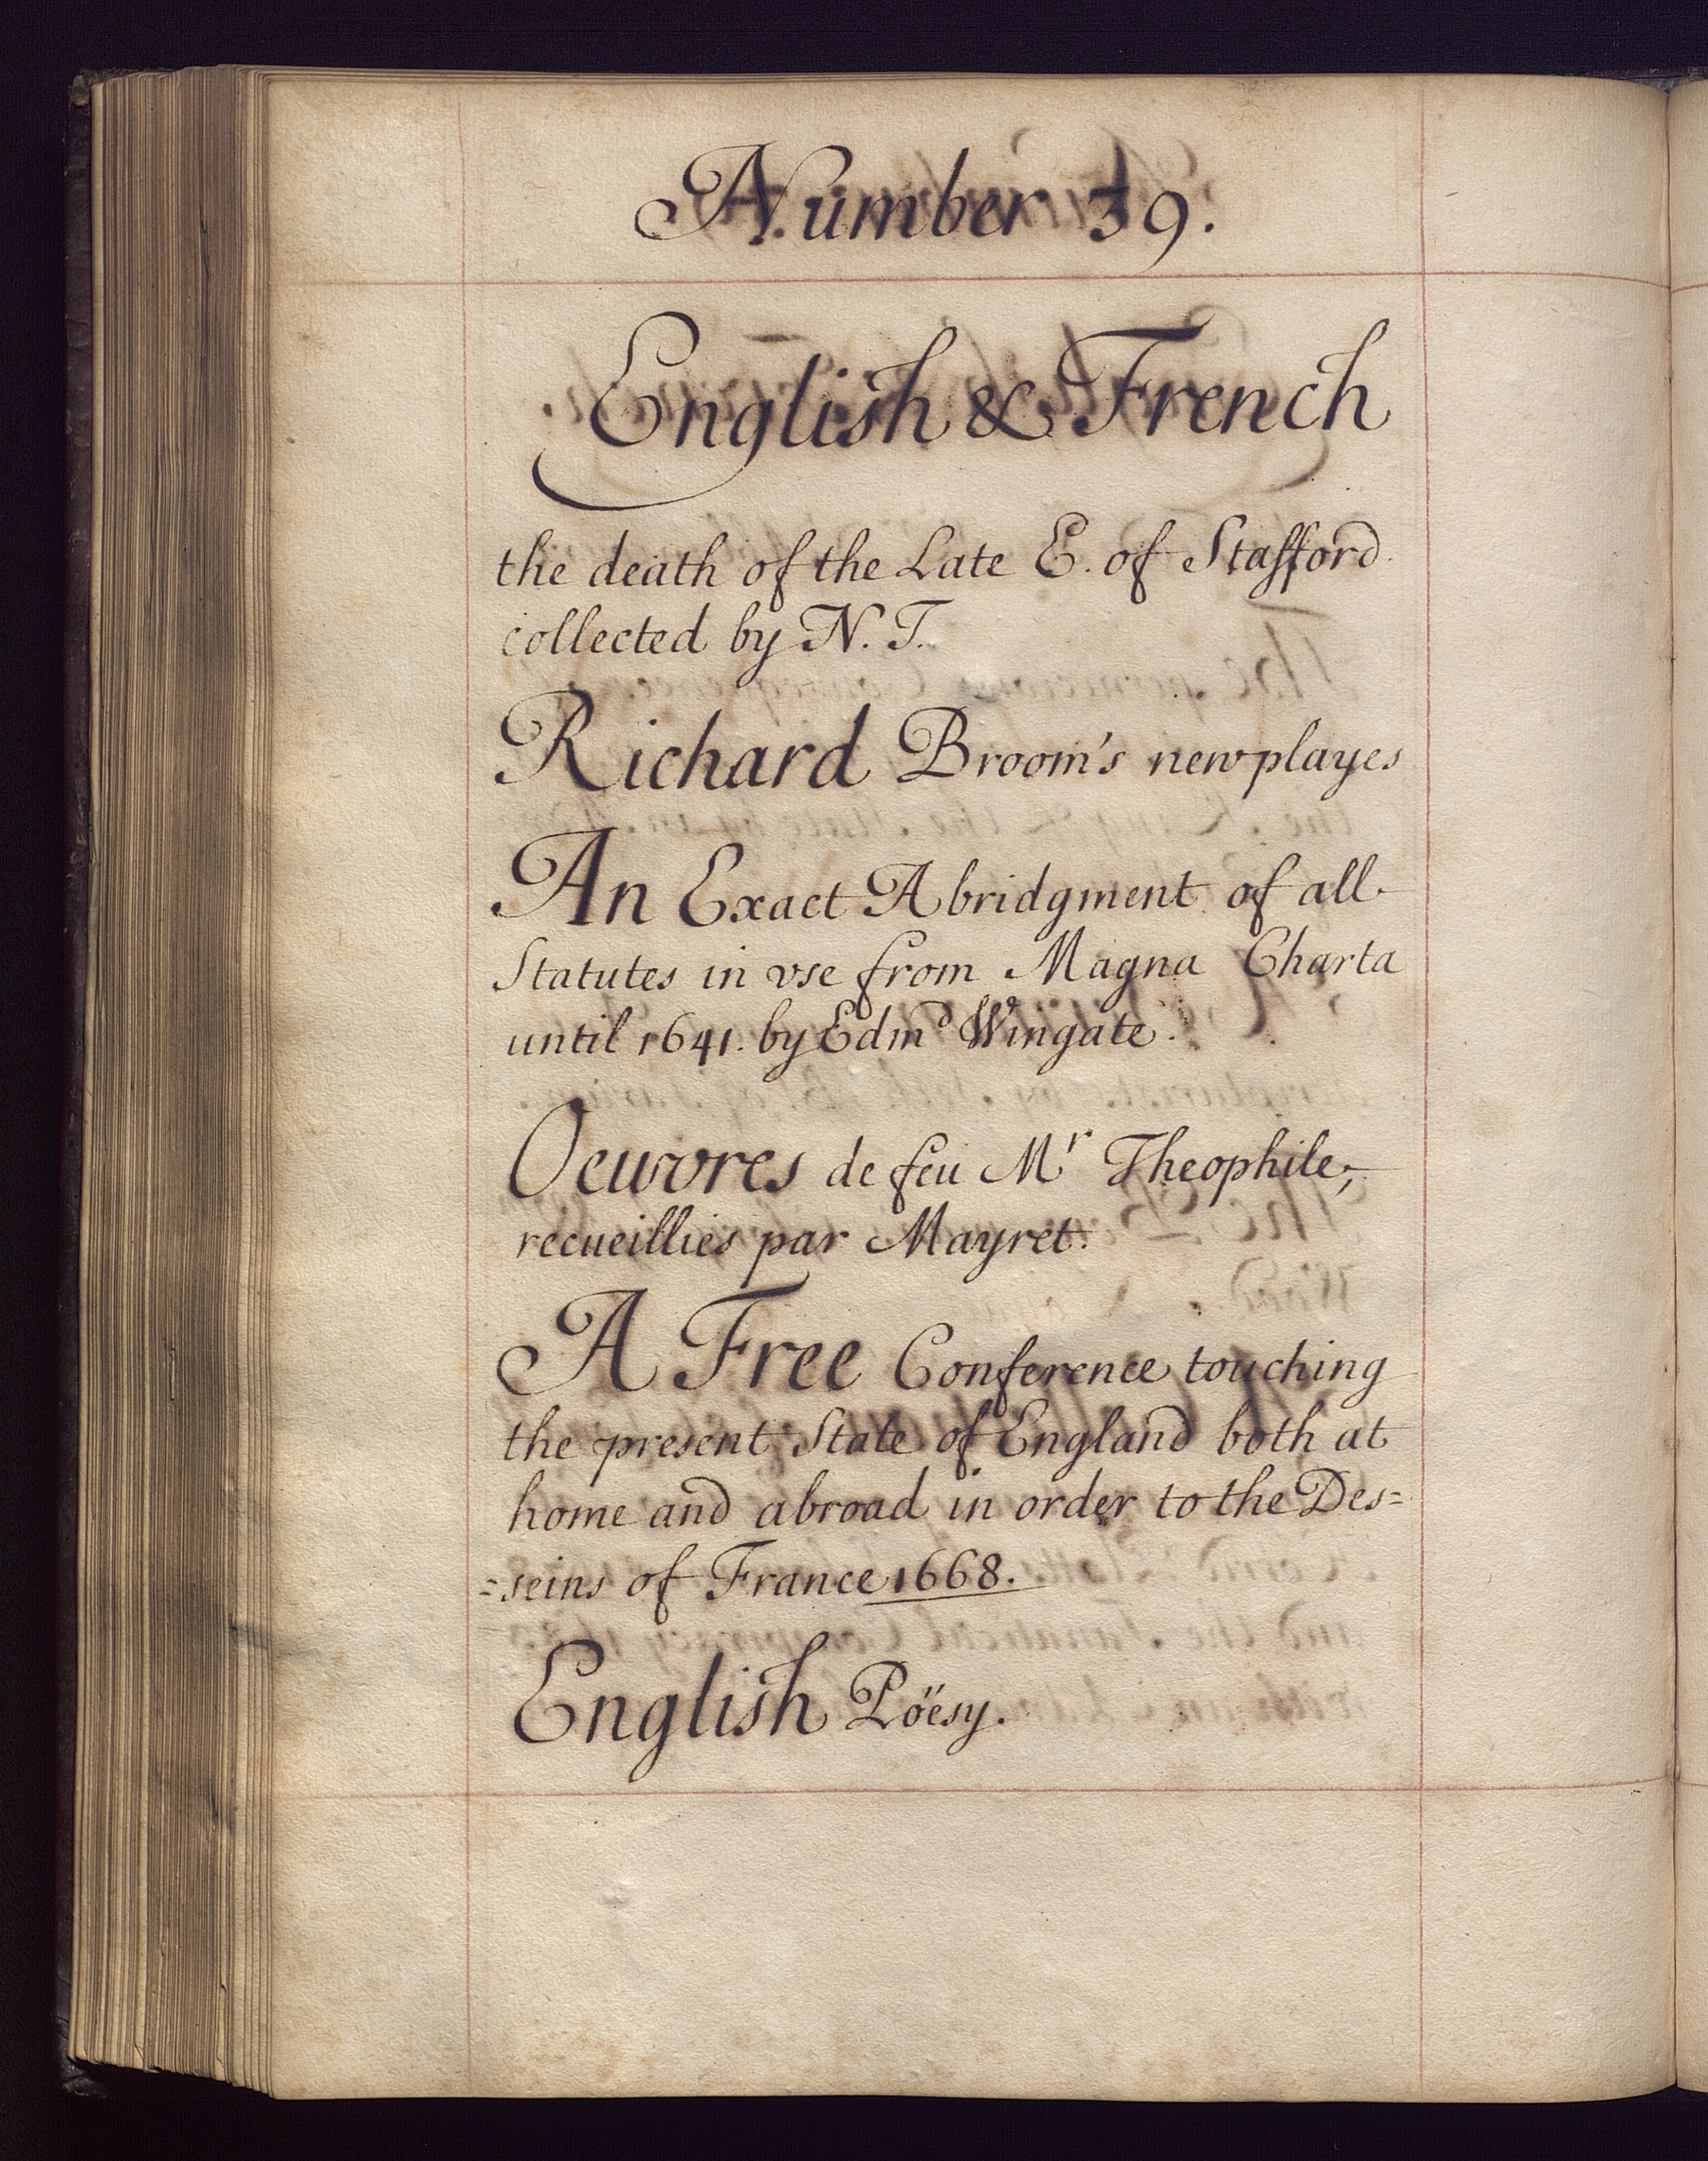 Number 39.
English & French
the death of the Late E. of Stafford
collected by N. T.
Richard Broom's new playes
An Exact Abridgment of all
Statutes in vse from Magna Charta
until 1641. by Edmd Wingate.
Oeuvres de feu Mr Theophile,
recueillies par Mayret.
A Free Conference touching
the present State of England both at
home and abroad in order to the Des=
=seins of France 1668.
English Pöesy.